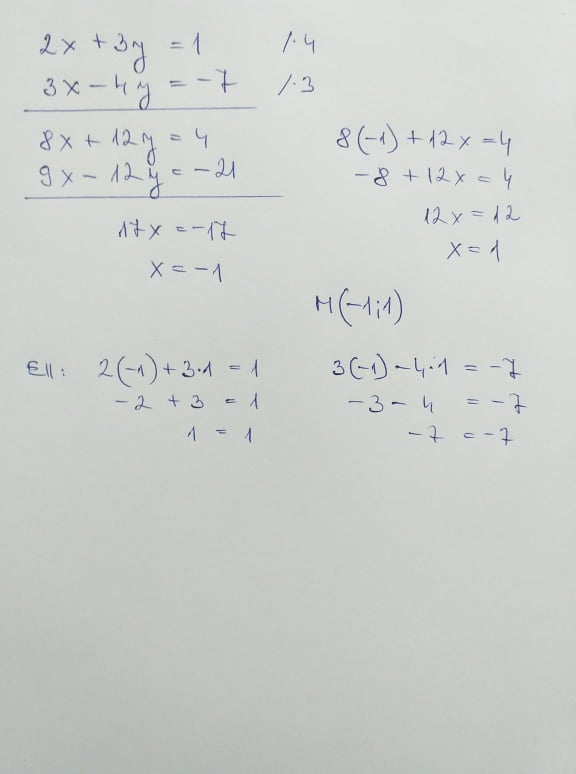 2x + 3y = 1 /·4
3x - 4y = -7 /·3
8x + 12y = 4
9x - 12y = -21
17x = -17
x = -1
8(-1) + 12x = 4
-8 + 12x = 4
12x = 12
x = 1
M(-1;1)
Ell: 2(-1) + 3·1 = 1
-2 + 3 = 1
1 = 1
3(-1) - 4·1 = -7
-3 - 4 = -7
-7 = -7